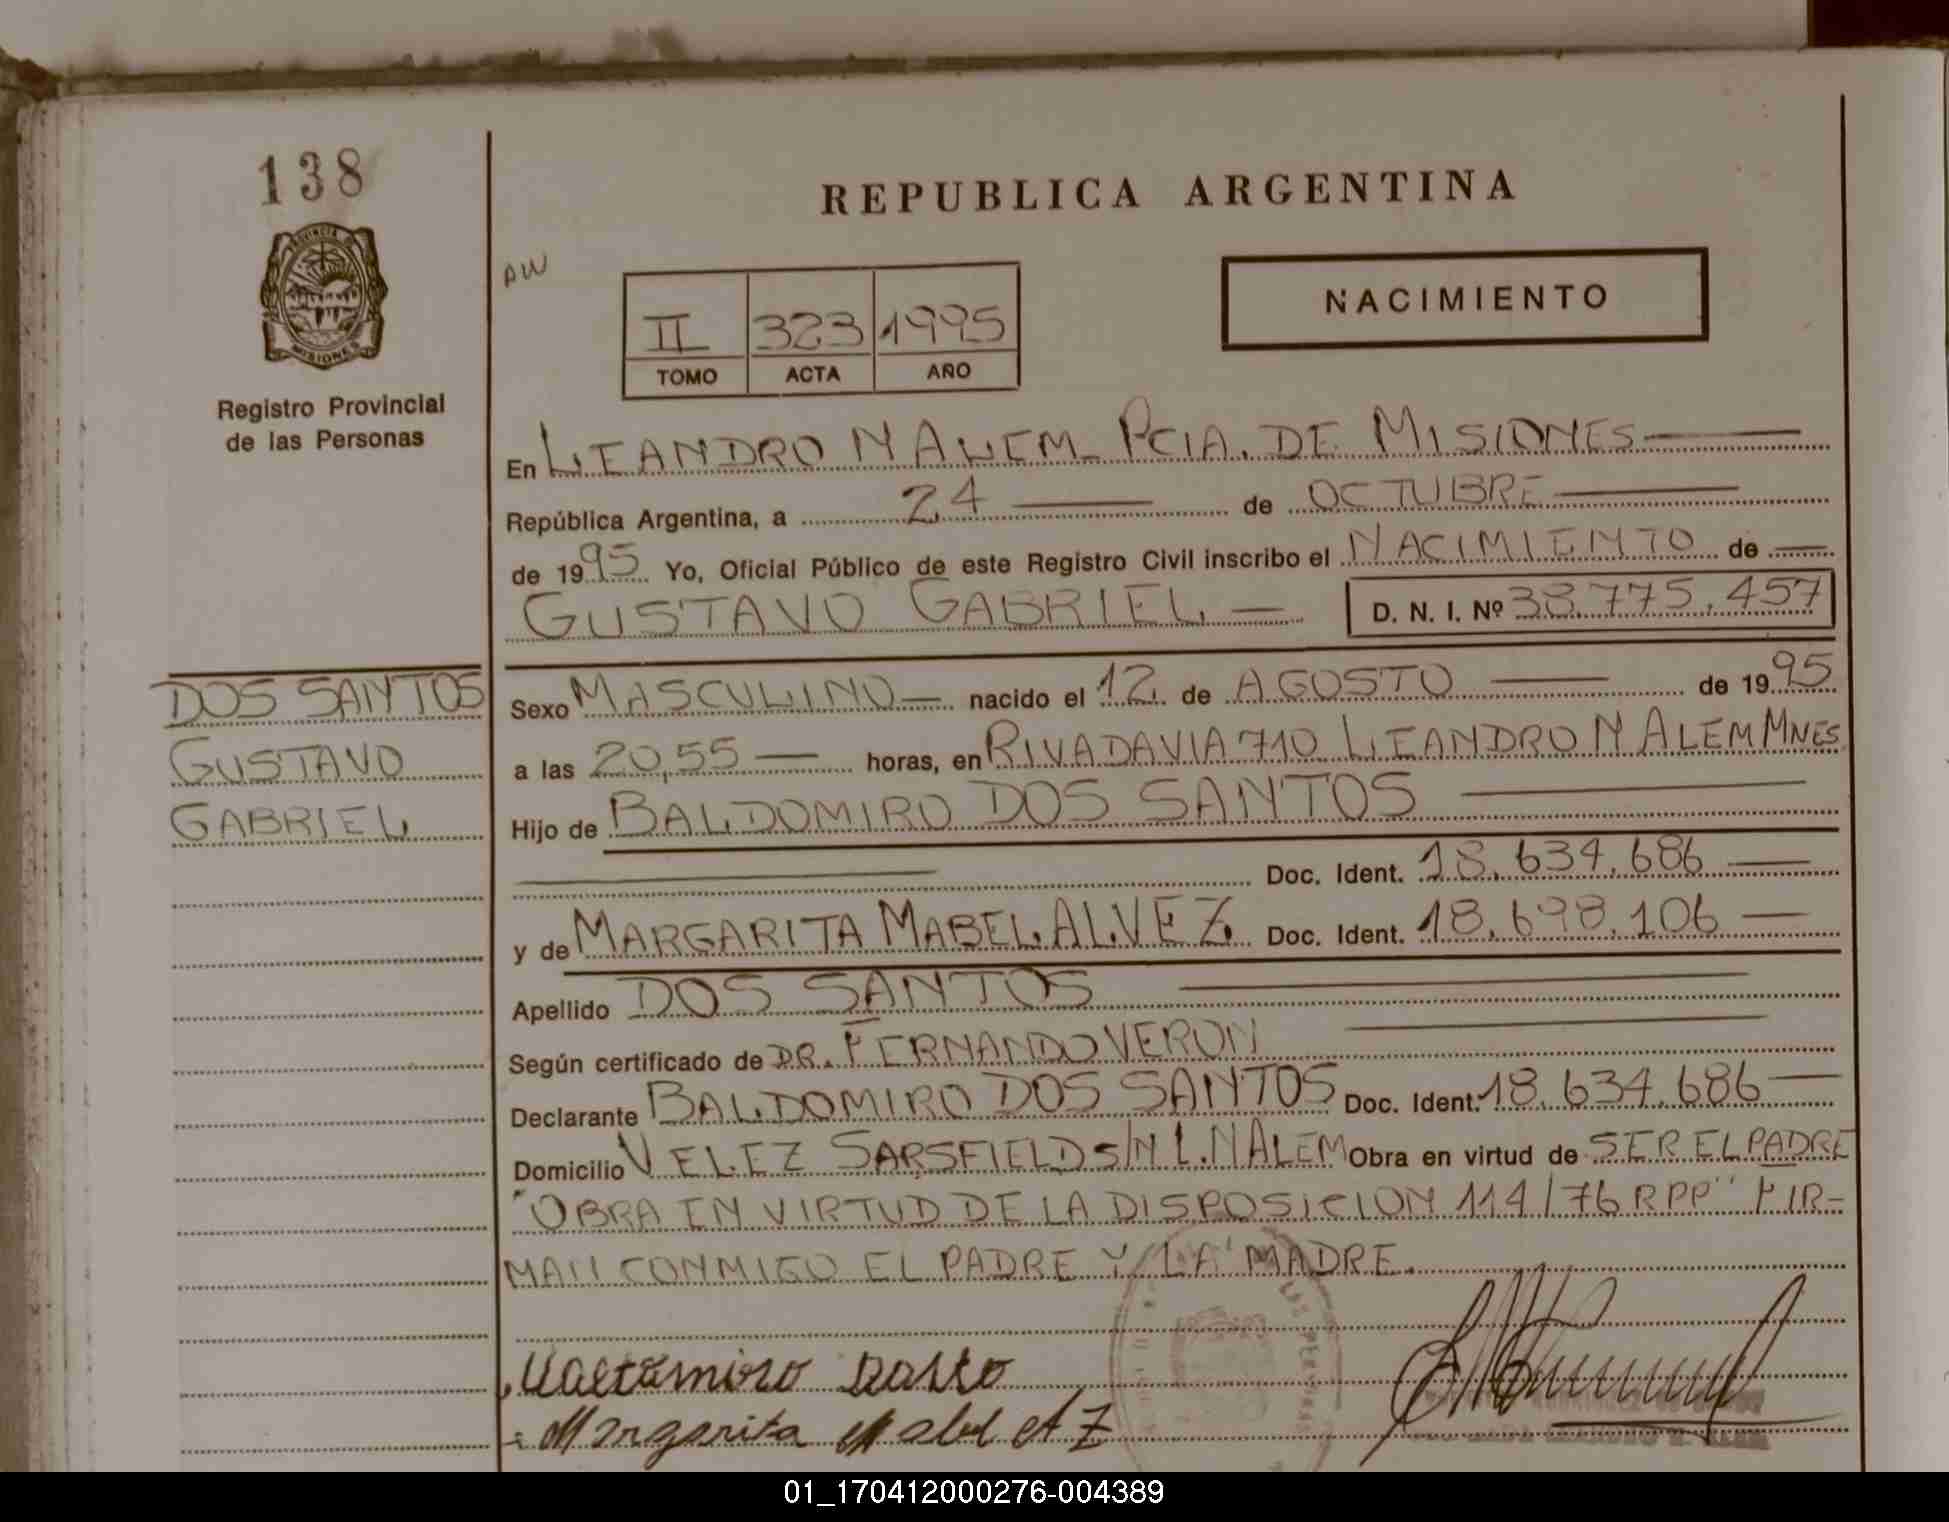 138
REPUBLICA ARGENTINA
PROVINCIA DE
MISIONES
AW
II 323 1995
TOMO ACTA AÑO
NACIMIENTO
Registro Provincial
de las Personas
En LEANDRO N ALEM - PCIA. DE MISIONES
República Argentina, a 24 de OCTUBRE
de 1995 Yo, Oficial Público de este Registro Civil inscribo el NACIMIENTO de
GUSTAVO GABRIEL D. N. I. Nº 38.775.457
DOS SANTOS
GUSTAVO
GABRIEL
Sexo MASCULINO nacido el 12 de AGOSTO de 1995
a las 20,55 horas, en RIVADAVIA 710 LEANDRO N ALEM MNES
Hijo de BALDOMIRO DOS SANTOS
Doc. Ident. 18.634.686
y de MARGARITA MABEL ALVEZ Doc. Ident. 18.698.106
Apellido DOS SANTOS
Según certificado de DR. FERNANDO VERON
Declarante BALDOMIRO DOS SANTOS Doc. Ident. 18.634.686
Domicilio VELEZ SARSFIELD S/N L.N ALEM Obra en virtud de SER EL PADRE
"OBRA EN VIRTUD DE LA DISPOSICION 114/76 RPP" FIR-
MAN CONMIGO EL PADRE Y LA MADRE.
Margarita Mabel A Z
01_170412000276-004389